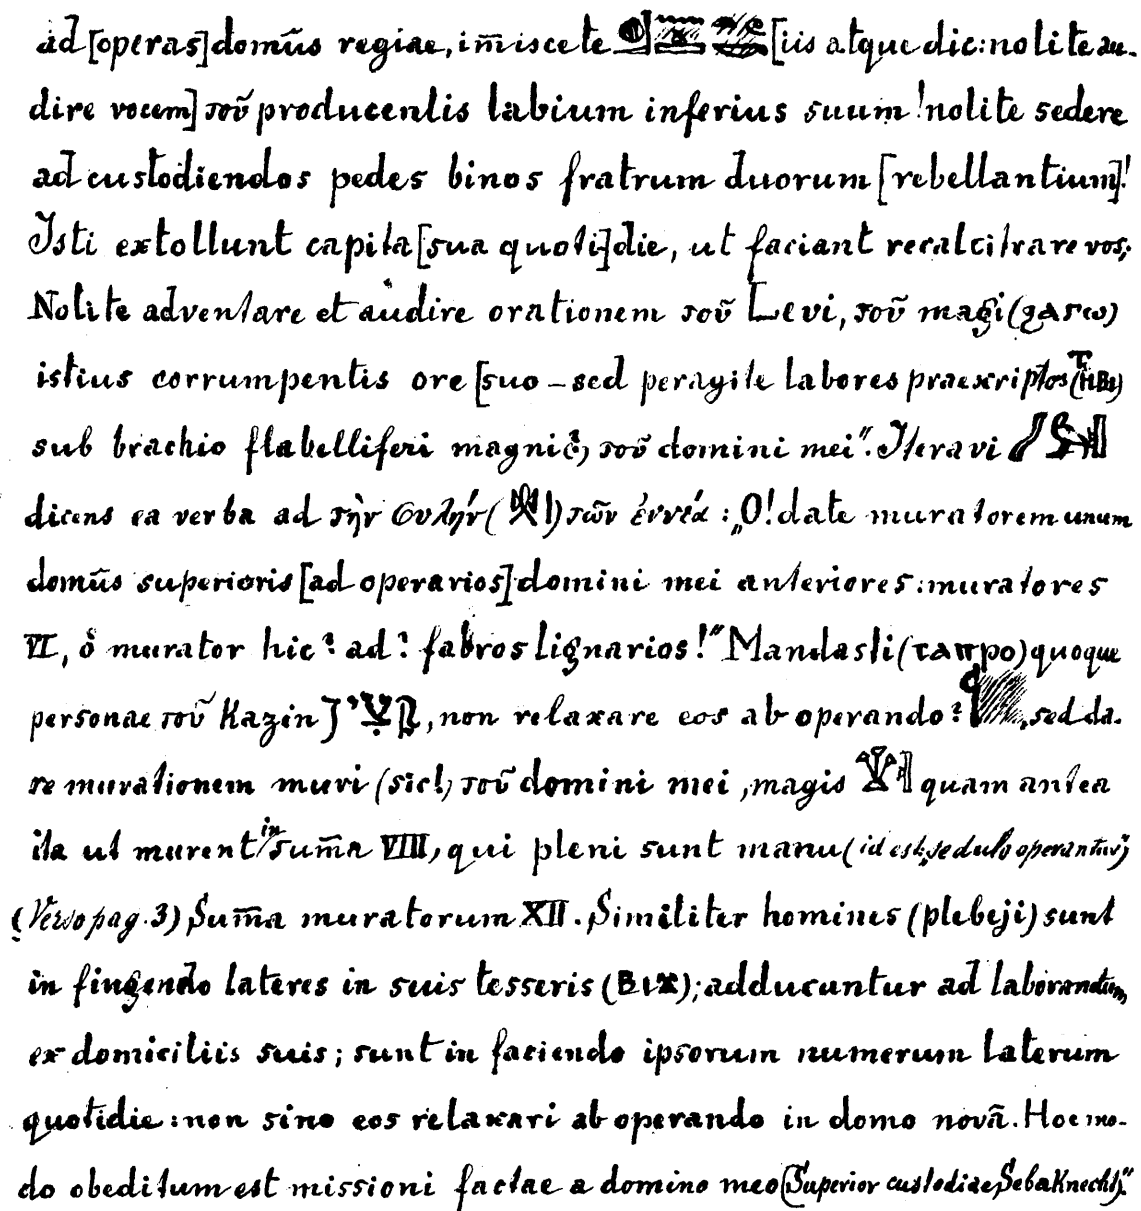 ad [operas] domûs regiae, im̄iscete [iis atque dic: nolite au-
dire vocem] τοῦ producentis labium inferius suum! nolite sedere
ad custodiendos pedes binos fratrum duorum [rebellantium]!
Isti extollunt capita [sua quoti]die, ut faciant recalcitrare vos;
Nolite adventare et audire orationem τοῦ Levi, τοῦ magi (ϩⲁⲅⲱ)
istius corrumpentis ore [suo – sed peragite labores praescriptos
sub brachio flabelliferi magni(?) τοῦ domini mei". Iteravi
dicens ea verba ad τὴν συλήν ( ) τῶν ἐννέα: „O! date muratorem unum
domûs superioris [ad operarios] domini mei anteriores: muratores
VI, ὁ murator hic? ad? fabros lignarios!" Mandasti (ⲧⲁⲡⲣⲟ) quoque
personae τοῦ Kazin קצין, non relaxare eos ab operando? , sed da-
re murationem muri (sic!) τοῦ domini mei, magis quam antea
ita ut murent in sum̄a VIII, qui pleni sunt manu (id est, sedulo operantur)
(Verso pag. 3) Sum̄a muratorum XII. Similiter homines (plebeji) sunt
in fingendo lateres in suis tesseris ; adducuntur ad laborandum,
ex domiciliis suis; sunt in faciendo ipsorum numerum laterum
quotidie: non sino eos relaxari ab operando in domo novâ. Hoc mo-
do obeditum est missioni factae a domino meo (Superior custodiae, Seba Knecht)."